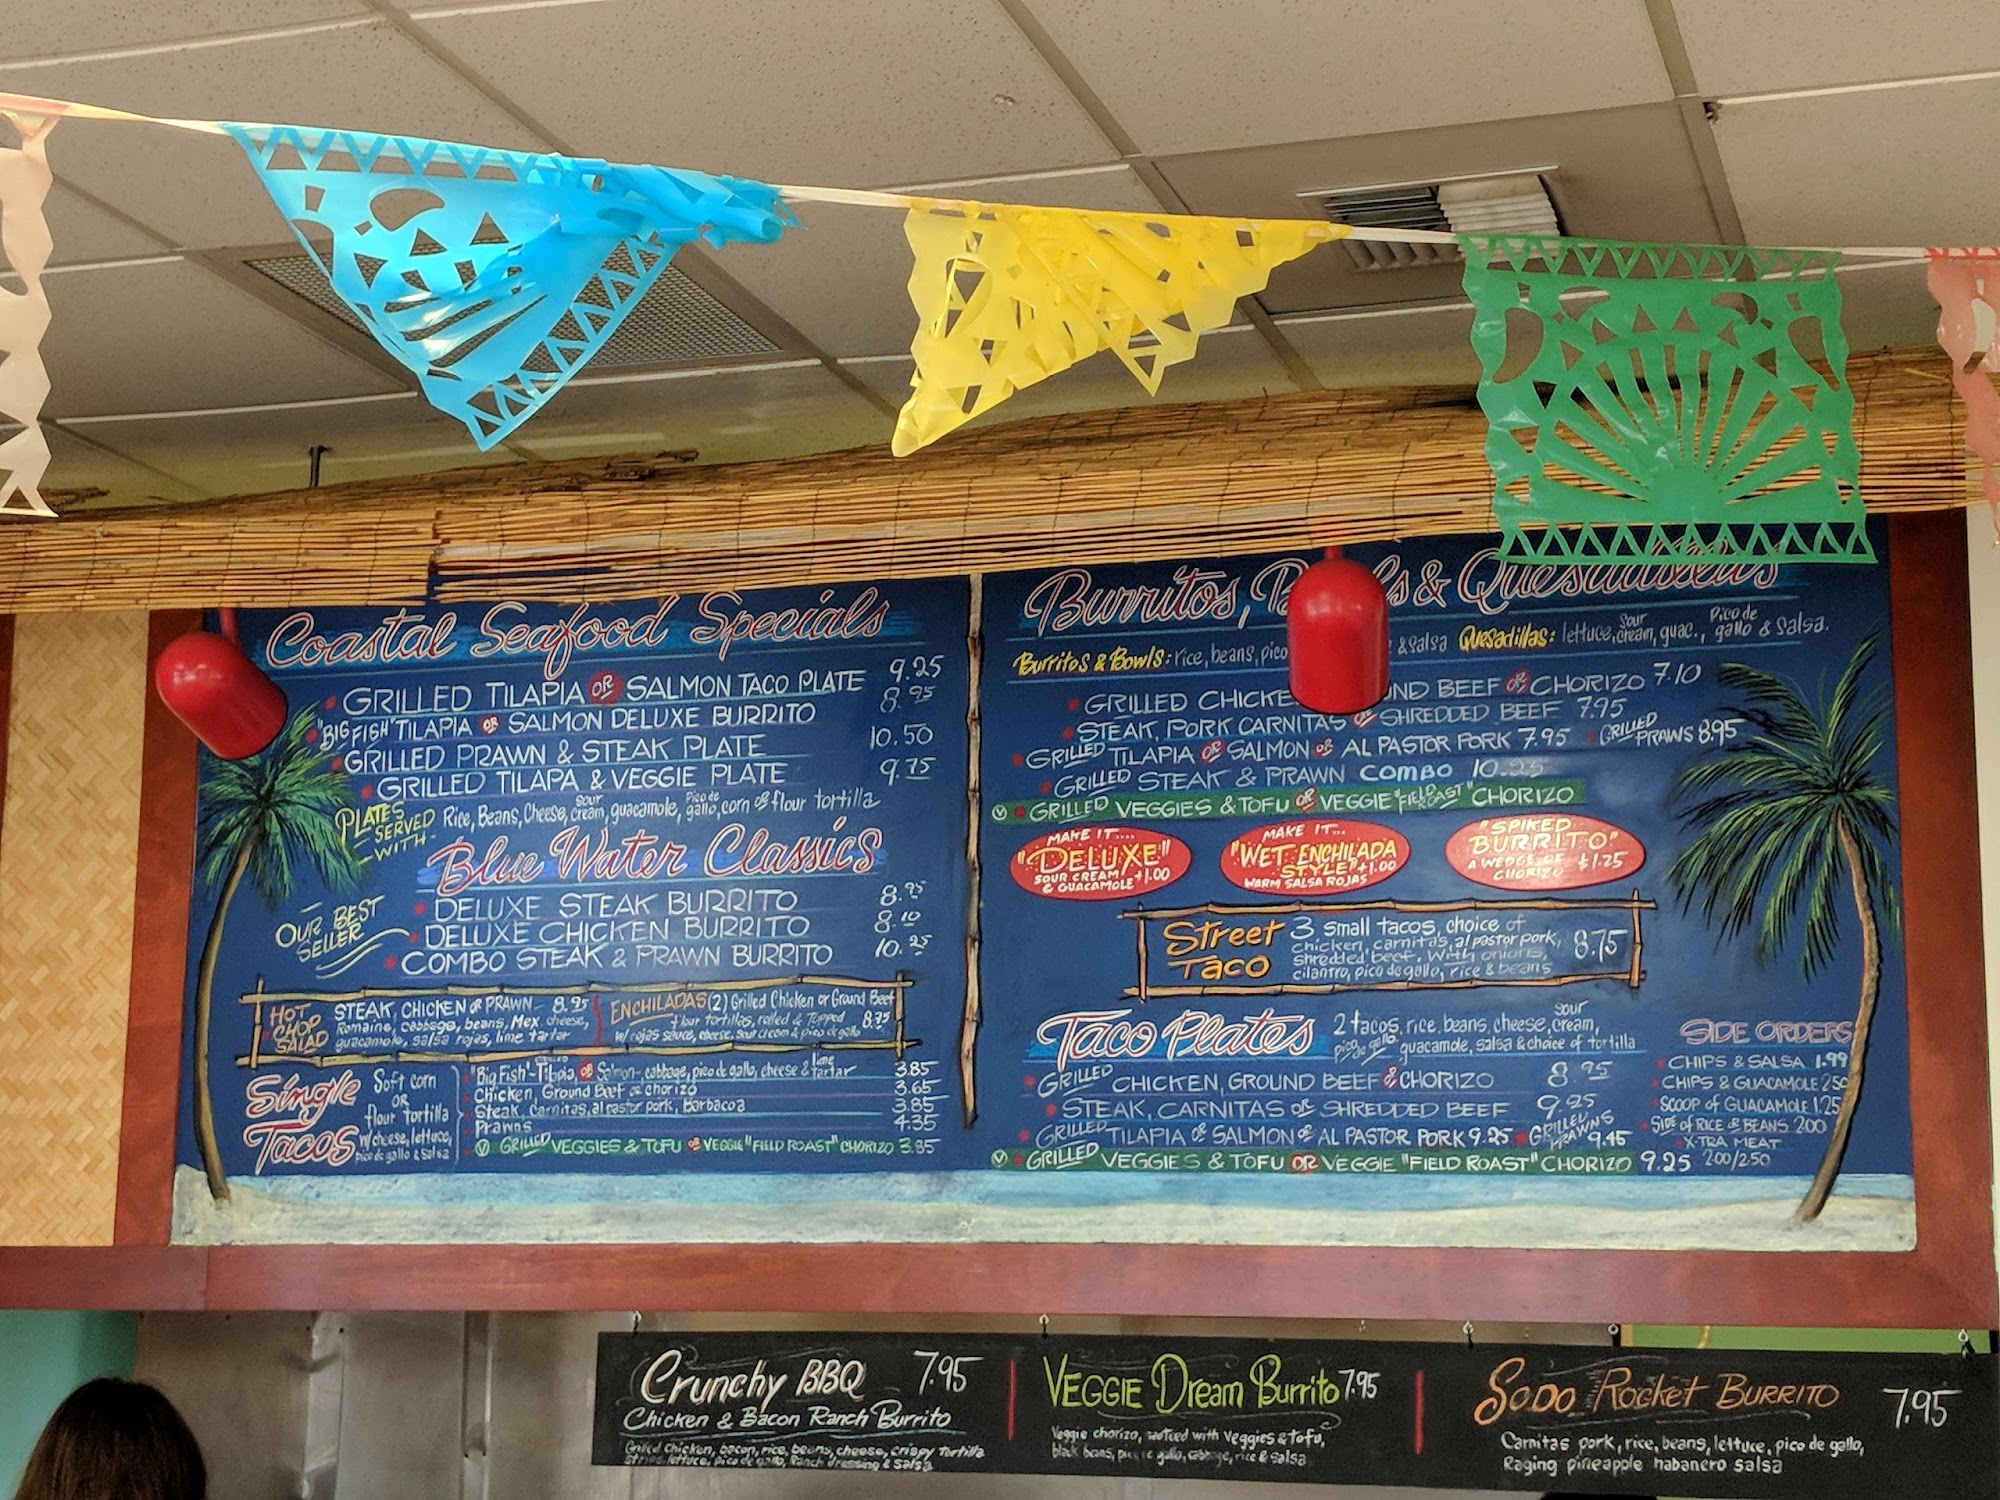 Coastal Seafood Specials
GRILLED TILAPIA OR SALMON TACO PLATE 9.25
"BIG FISH" TILAPIA OR SALMON DELUXE BURRITO 8.95
GRILLED PRAWN & STEAK PLATE 10.50
GRILLED TILAPA & VEGGIE PLATE 9.75
PLATES SERVED WITH- Rice, Beans, Cheese, sour cream, guacamole, Pico de gallo, corn or flour tortilla
Blue Water Classics
OUR BEST SELLER
DELUXE STEAK BURRITO 8.95
DELUXE CHICKEN BURRITO 8.10
COMBO STEAK & PRAWN BURRITO 10.25
HOT CHOP SALAD
STEAK, CHICKEN OR PRAWN - 8.95
Romaine, cabbage, beans, Mex. cheese,
guacamole, salsa rojas, lime tartar
ENCHILADAS (2) Grilled Chicken or Ground Beef
flour tortillas, rolled & Topped 8.75
w/ rojas sauce, cheese, sour cream & pico de gallo
Single Tacos
Soft corn
OR
flour tortilla
w/cheese, lettuce,
pico de gallo & salsa
"Big Fish"- Tilpia, OR Salmon- cabbage, pico de gallo, cheese & lime tartar 3.85
Chicken, Ground Beef or chorizo 3.65
Steak, Carnitas, al pastor pork, Barbacoa 3.85
Prawns 4.35
V GRILLED VEGGIES & TOFU OR VEGGIE "FIELD ROAST" CHORIZO 3.85
Burritos, & Quesadillas
Burritos & Bowls: rice, beans, pico & salsa Quesadillas: lettuce, sour cream, guac., Pico de gallo & salsa.
GRILLED BEEF OR CHORIZO 7.10
STEAK, PORK CARNITAS OR SHREDDED BEEF 7.95
GRILLED TILAPIA OR SALMON OR AL PASTOR PORK 7.95 GRILLED PRAWNS 8.95
GRILLED STEAK & PRAWN COMBO 10.25
V GRILLED VEGGIES & TOFU OR VEGGIE "FIELD ROAST" CHORIZO
MAKE IT....
"DELUXE"
SOUR CREAM & GUACAMOLE +1.00
MAKE IT...
"WET ENCHILADA
STYLE" +1.00
WARM SALSA ROJAS
"SPIKED
BURRITO"
A WEDGE OF CHORIZO +1.25
Street Taco
3 small tacos, choice of
chicken, carnitas, al pastor pork,
shredded beef. With onions,
cilantro, pico de gallo, rice & beans
8.75
Taco Plates
2 tacos, rice, beans, cheese, sour cream,
pico de gallo, guacamole, salsa & choice of tortilla
GRILLED CHICKEN, GROUND BEEF & CHORIZO 8.95
STEAK, CARNITAS OR SHREDDED BEEF 9.25
GRILLED TILAPIA OR SALMON OR AL PASTOR PORK 9.25 GRILLED PRAWNS 9.45
V GRILLED VEGGIES & TOFU OR VEGGIE "FIELD ROAST" CHORIZO 9.25
SIDE ORDERS
CHIPS & SALSA 1.99
CHIPS & GUACAMOLE 2.50
SCOOP of GUACAMOLE 1.25
SIDE of RICE OR BEANS 2.00
X-TRA MEAT
2.00/2.50
Crunchy BBQ 7.95
Chicken & Bacon Ranch Burrito
Grilled Chicken, bacon, rice, beans, cheese, crispy tortilla
strips, lettuce, pico de gallo, Ranch dressing & salsa
VEGGIE Dream Burrito 7.95
Veggie chorizo, sauteed with veggies & tofu,
black beans, pico de gallo, cabbage, rice & salsa
SODO ROCKET BURRITO 7.95
Carnitas pork, rice, beans, lettuce, pico de gallo,
Raging pineapple habanero salsa